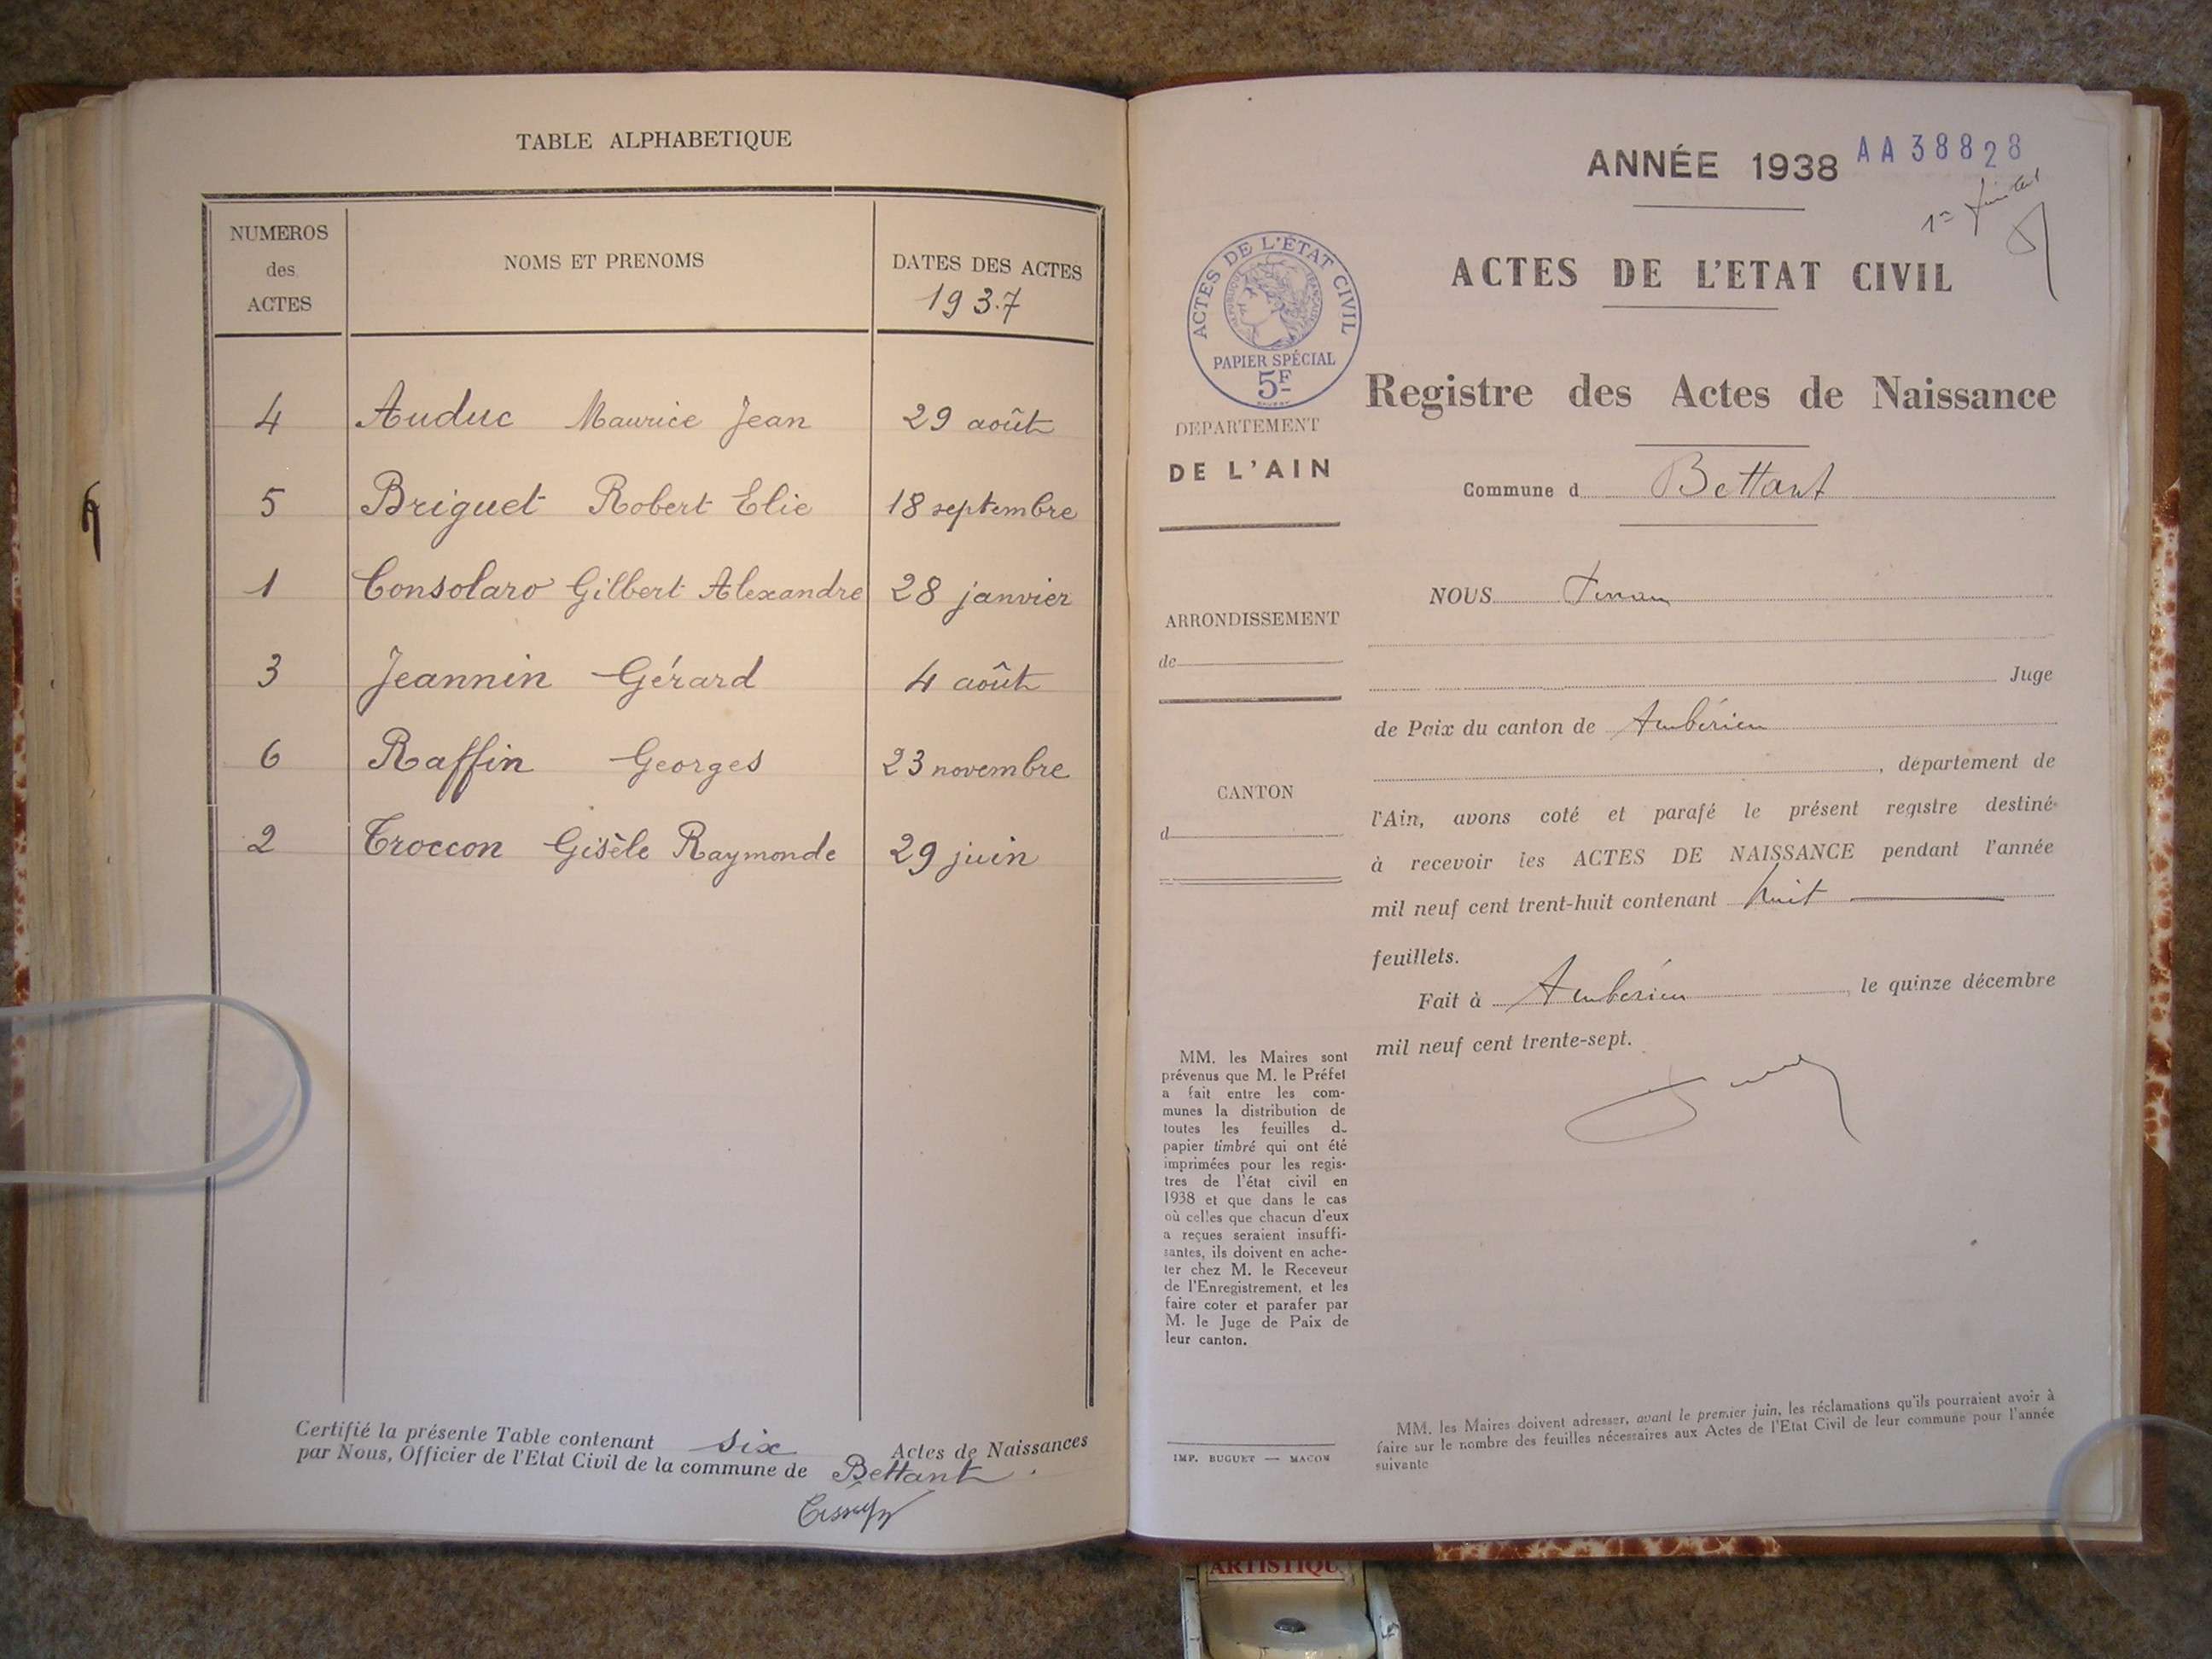 TABLE ALPHABETIQUE
NUMEROS des ACTES
NOMS ET PRENOMS
DATES DES ACTES
1937
4 Auduc Maurice Jean 29 août
5 Briguet Robert Elie 18 septembre
1 Consolaro Gilbert Alexandre 28 janvier
3 Jeannin Gérard 4 août
6 Raffin Georges 23 novembre
2 Troccon Gisèle Raymonde 29 juin
Certifié la présente Table contenant six Actes de Naissances
par Nous, Officier de l'Etat Civil de la commune de Bettant.
ANNÉE 1938
AA38828
ACTES DE L'ETAT CIVIL
ACTES DE L'ÉTAT CIVIL
RÉPUBLIQUE FRANÇAISE
PAPIER SPÉCIAL
5F
Registre des Actes de Naissance
DEPARTEMENT
DE L'AIN
Commune d Bettant
NOUS
ARRONDISSEMENT
de
Juge
de Paix du canton de Ambérieu
, département de
CANTON
d
l'Ain, avons coté et parafé le présent registre destiné
à recevoir les ACTES DE NAISSANCE pendant l'année
mil neuf cent trent-huit contenant huit
feuillets.
Fait à Ambérieu, le quinze décembre
mil neuf cent trente-sept.
MM. les Maires sont
prévenus que M. le Préfet
a fait entre les com-
munes la distribution de
toutes les feuilles de
papier timbré qui ont été
imprimées pour les regis-
tres de l'état civil en
1938 et que dans le cas
où celles que chacun d'eux
a reçues seraient insuffi-
santes, ils doivent en ache-
ter chez M. le Receveur
de l'Enregistrement, et les
faire coter et parafer par
M. le Juge de Paix de
leur canton.
IMP. BUGUET — MACON
MM. les Maires doivent adresser, avant le premier juin, les réclamations qu'ils pourraient avoir à
faire sur le nombre des feuilles nécessaires aux Actes de l'Etat Civil de leur commune pour l'année
suivante
ARTISTIQU